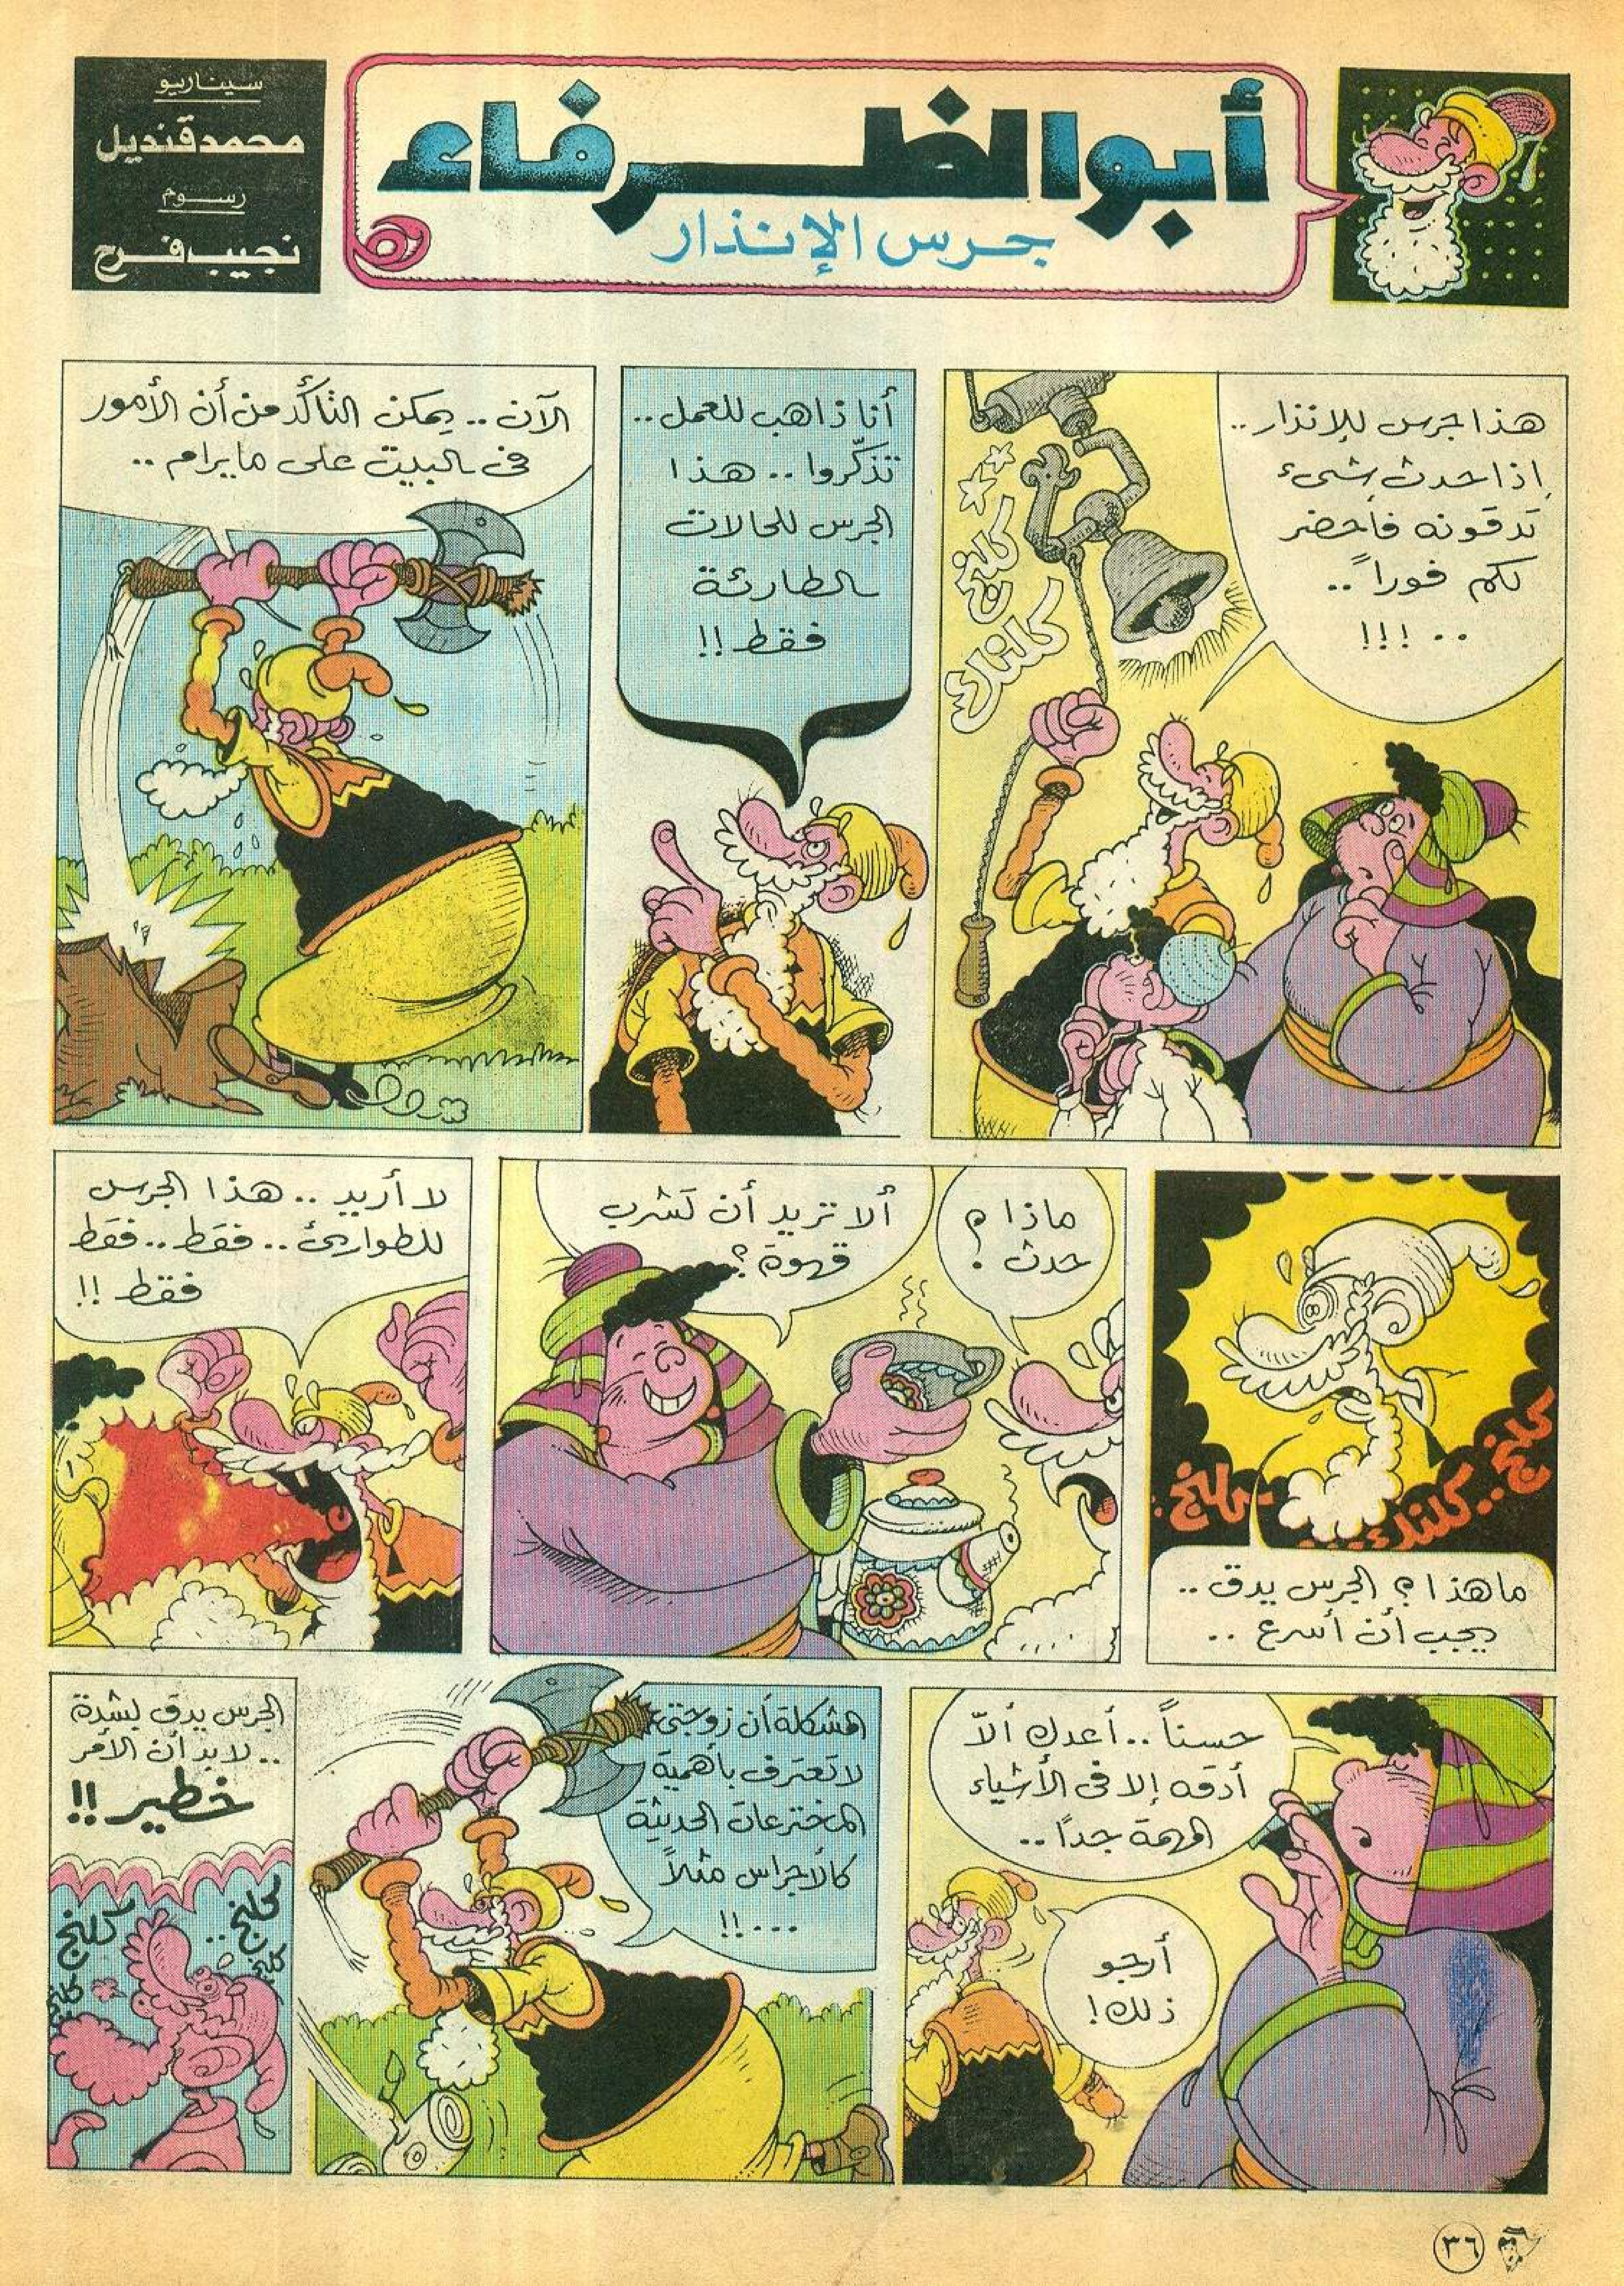 أبو الظرفاء
جرس الإنذار
سيناريو
محمد قنديل
رسوم
نجيب فرح
هذا جرس للإنذار..
إذا حدث شيء
تدقونه فأحضر
لكم فوراً..
..!!!
كلنج
كلنك
أنا ذاهب للعمل..
تذكّروا.. هذا
الجرس للحالات
الطارئة
فقط!!
الآن.. يمكن التأكد من أن الأمور
فى البيت على ما يرام..
كلنج..
كلنك..
كلنج
ما هذا؟ الجرس يدق..
يجب أن أسرع..
ماذا
حدث؟!
ألا تريد أن تشرب
قهوة؟
لا أريد.. هذا الجرس
للطوارئ.. فقط.. فقط
فقط!!
حسناً.. أعدك ألاّ
أدقه إلا فى الأشياء
المهمة جداً..
أرجو
ذلك!
المشكلة أن زوجتى
لا تعترف بأهمية
المخترعات الحديثة
كالأجراس مثلاً
...!!
الجرس يدق بشدة
..لابد أن الأمر
خطير!!
كلنج..
كلنج
كلنج
كلنج
٣٦